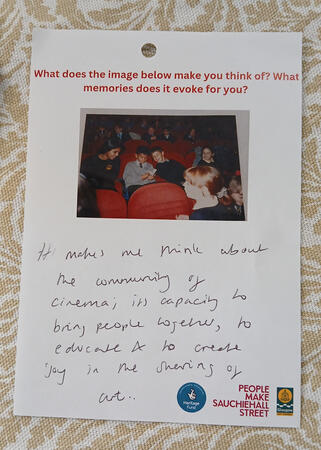 What does the image below make you think of? What
memories does it evoke for you?
It makes me think about
the community of
cinema; its capacity to
bring people together, to
educate & to create
joy in the sharing of
art..
Heritage
Fund
PEOPLE
MAKE
SAUCHIEHALL
STREET